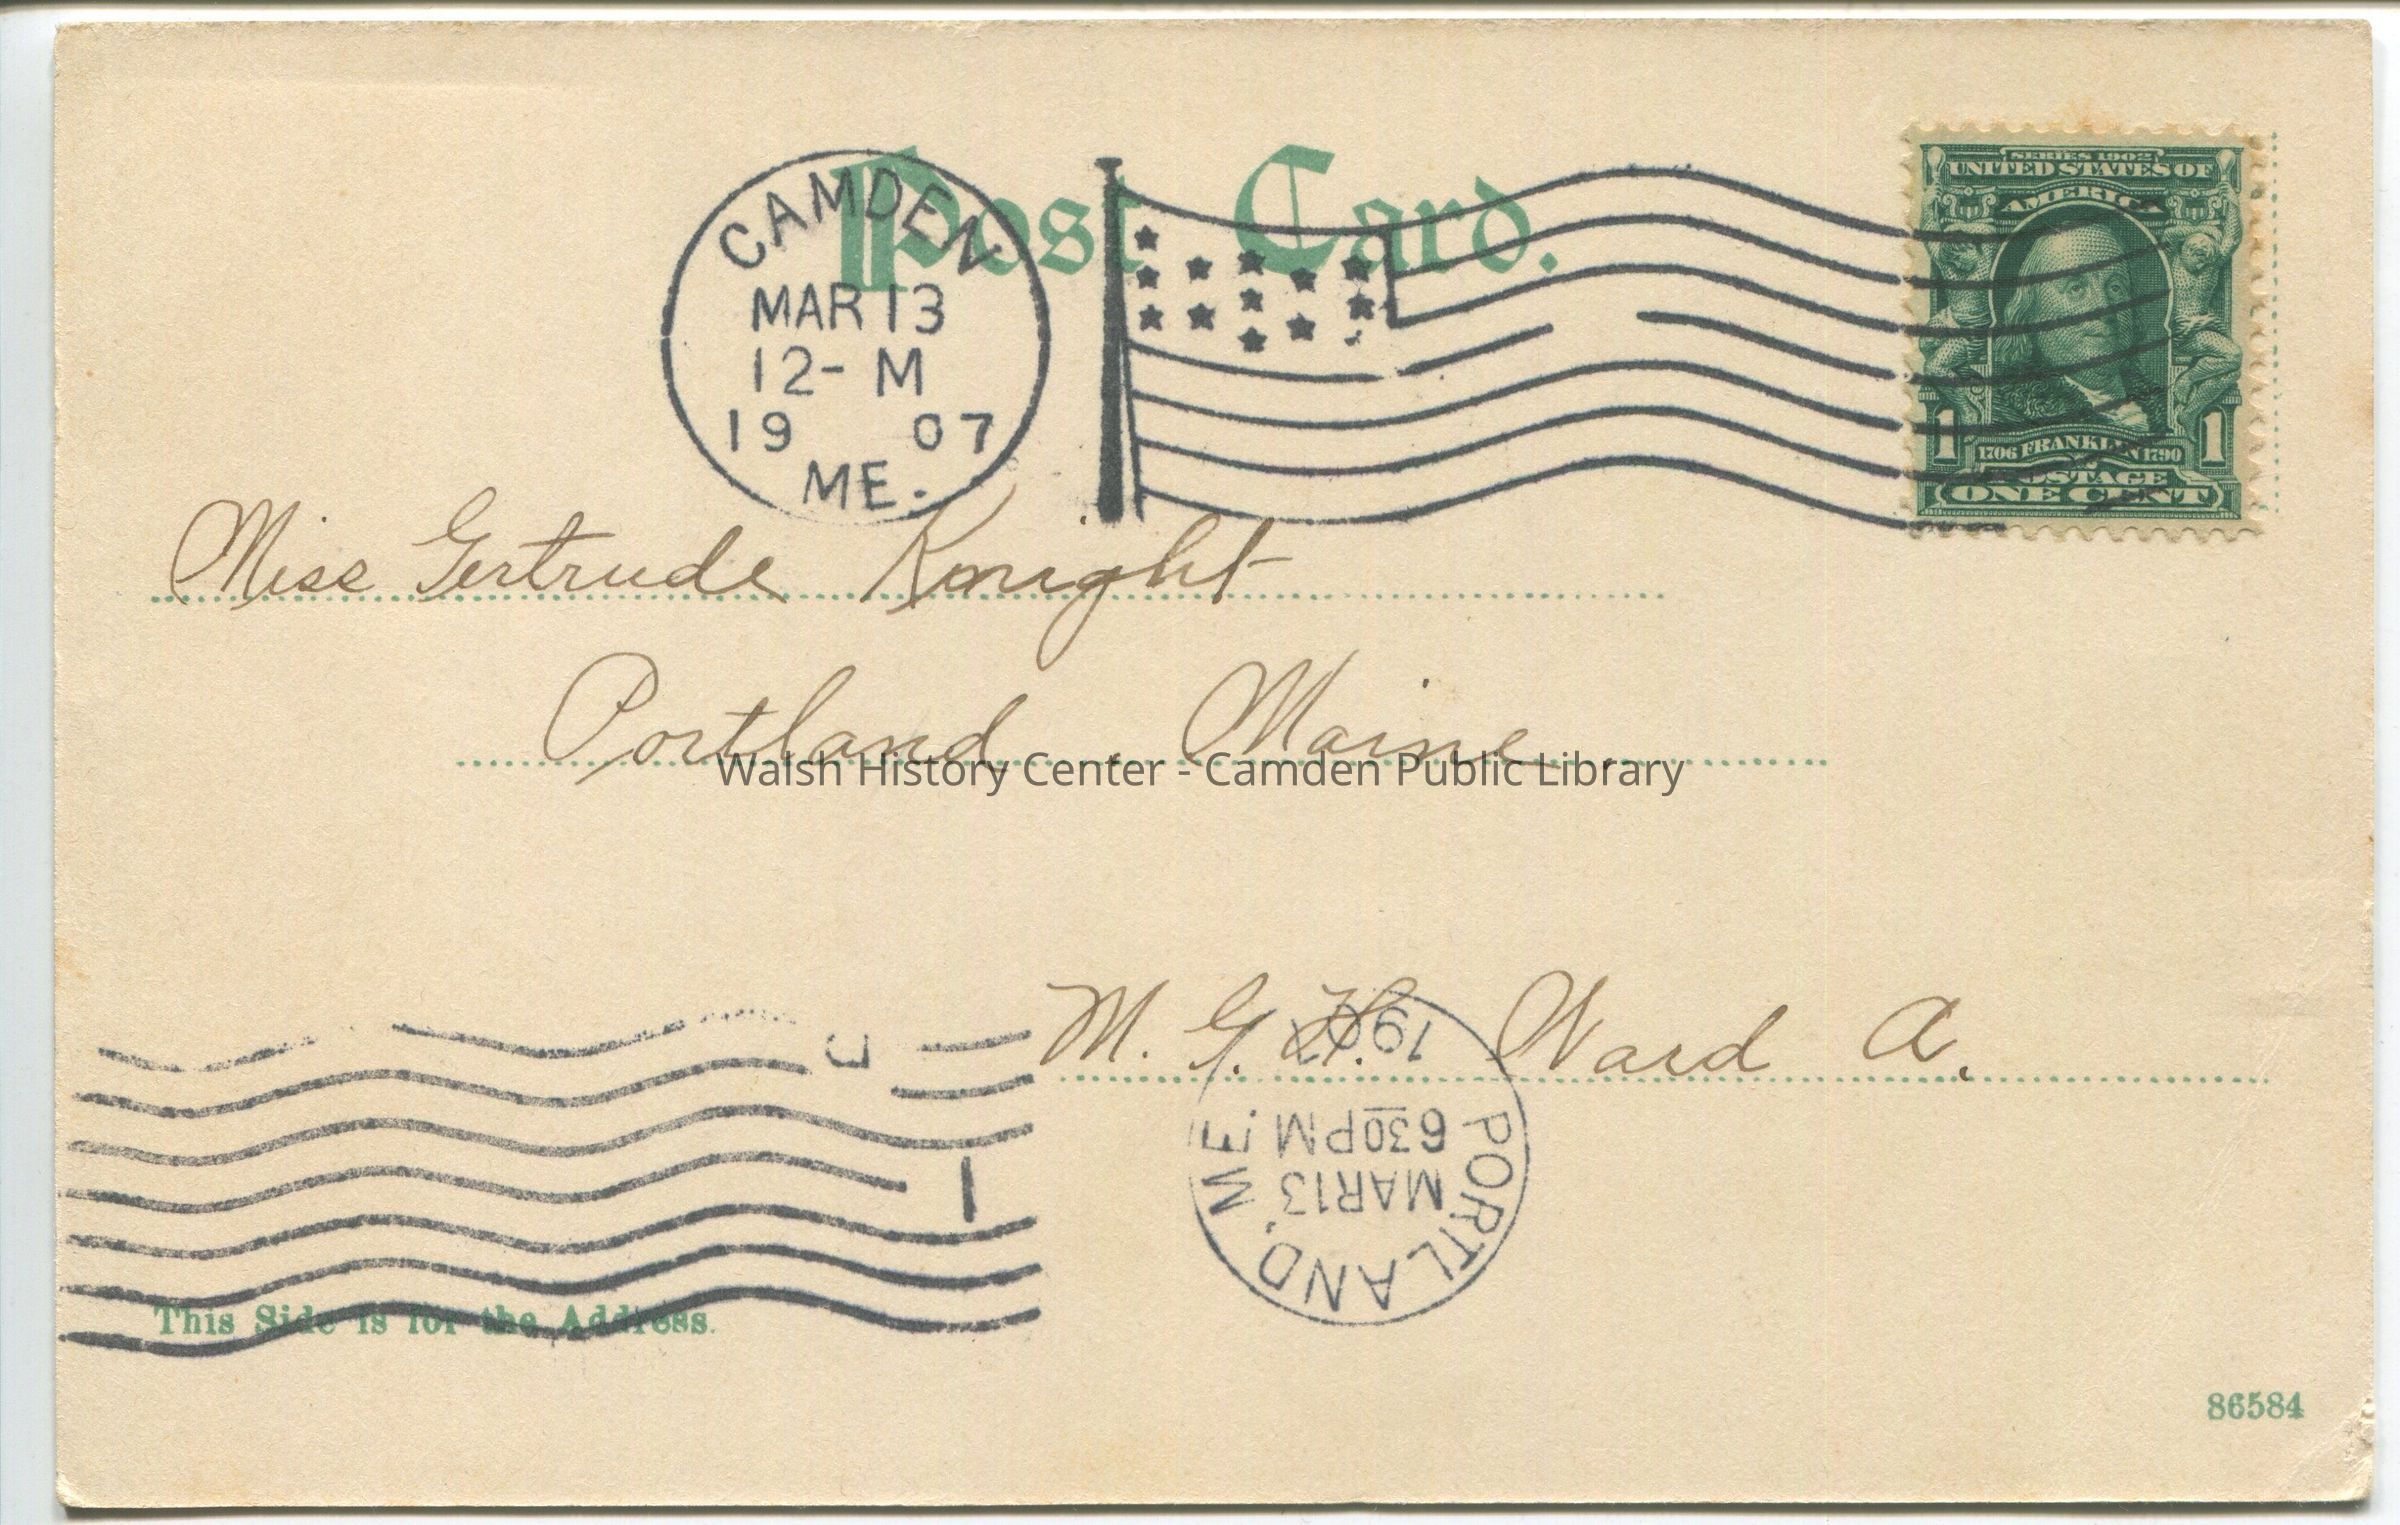 Post Card.
CAMDEN
MAR 13
12- M
19 07
ME.
SERIES 1902
UNITED STATES OF
AMERICA
1706 FRANKLIN 1790
1 1
POSTAGE
ONE CENT
Miss Gertrude Knight
Portland Maine
Walsh History Center - Camden Public Library
M. G. H. Ward A.
PORTLAND, ME.
MAR 13
630 PM
1907
1
This Side is for the Address.
86584